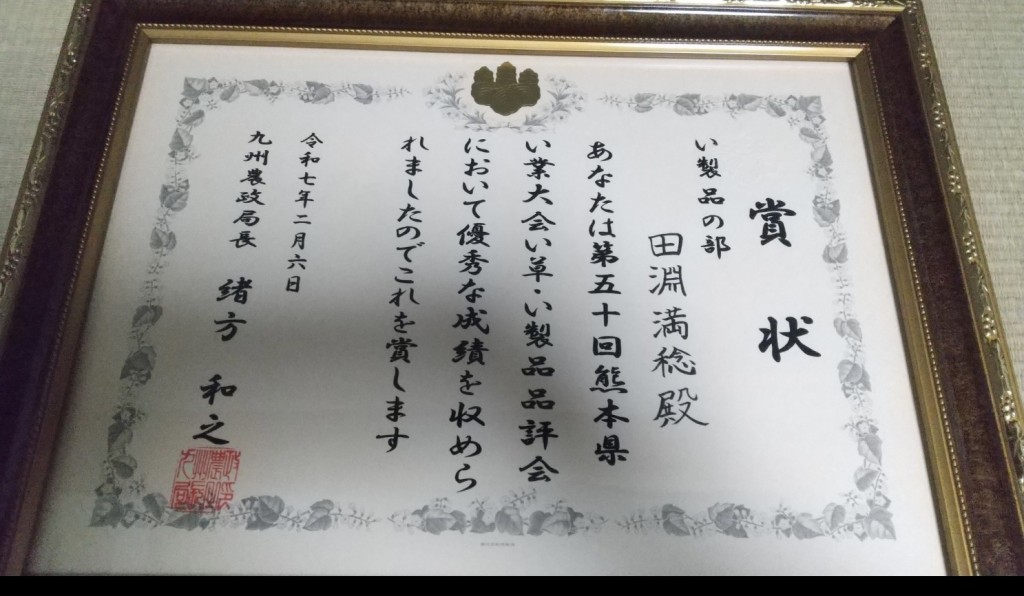 賞状
い製品の部
田淵満稔殿
あなたは第五十回熊本県
い業大会い草・い製品品評会
において優秀な成績を収めら
れましたのでこれを賞します
令和七年二月六日
九州農政局長 緒方和之